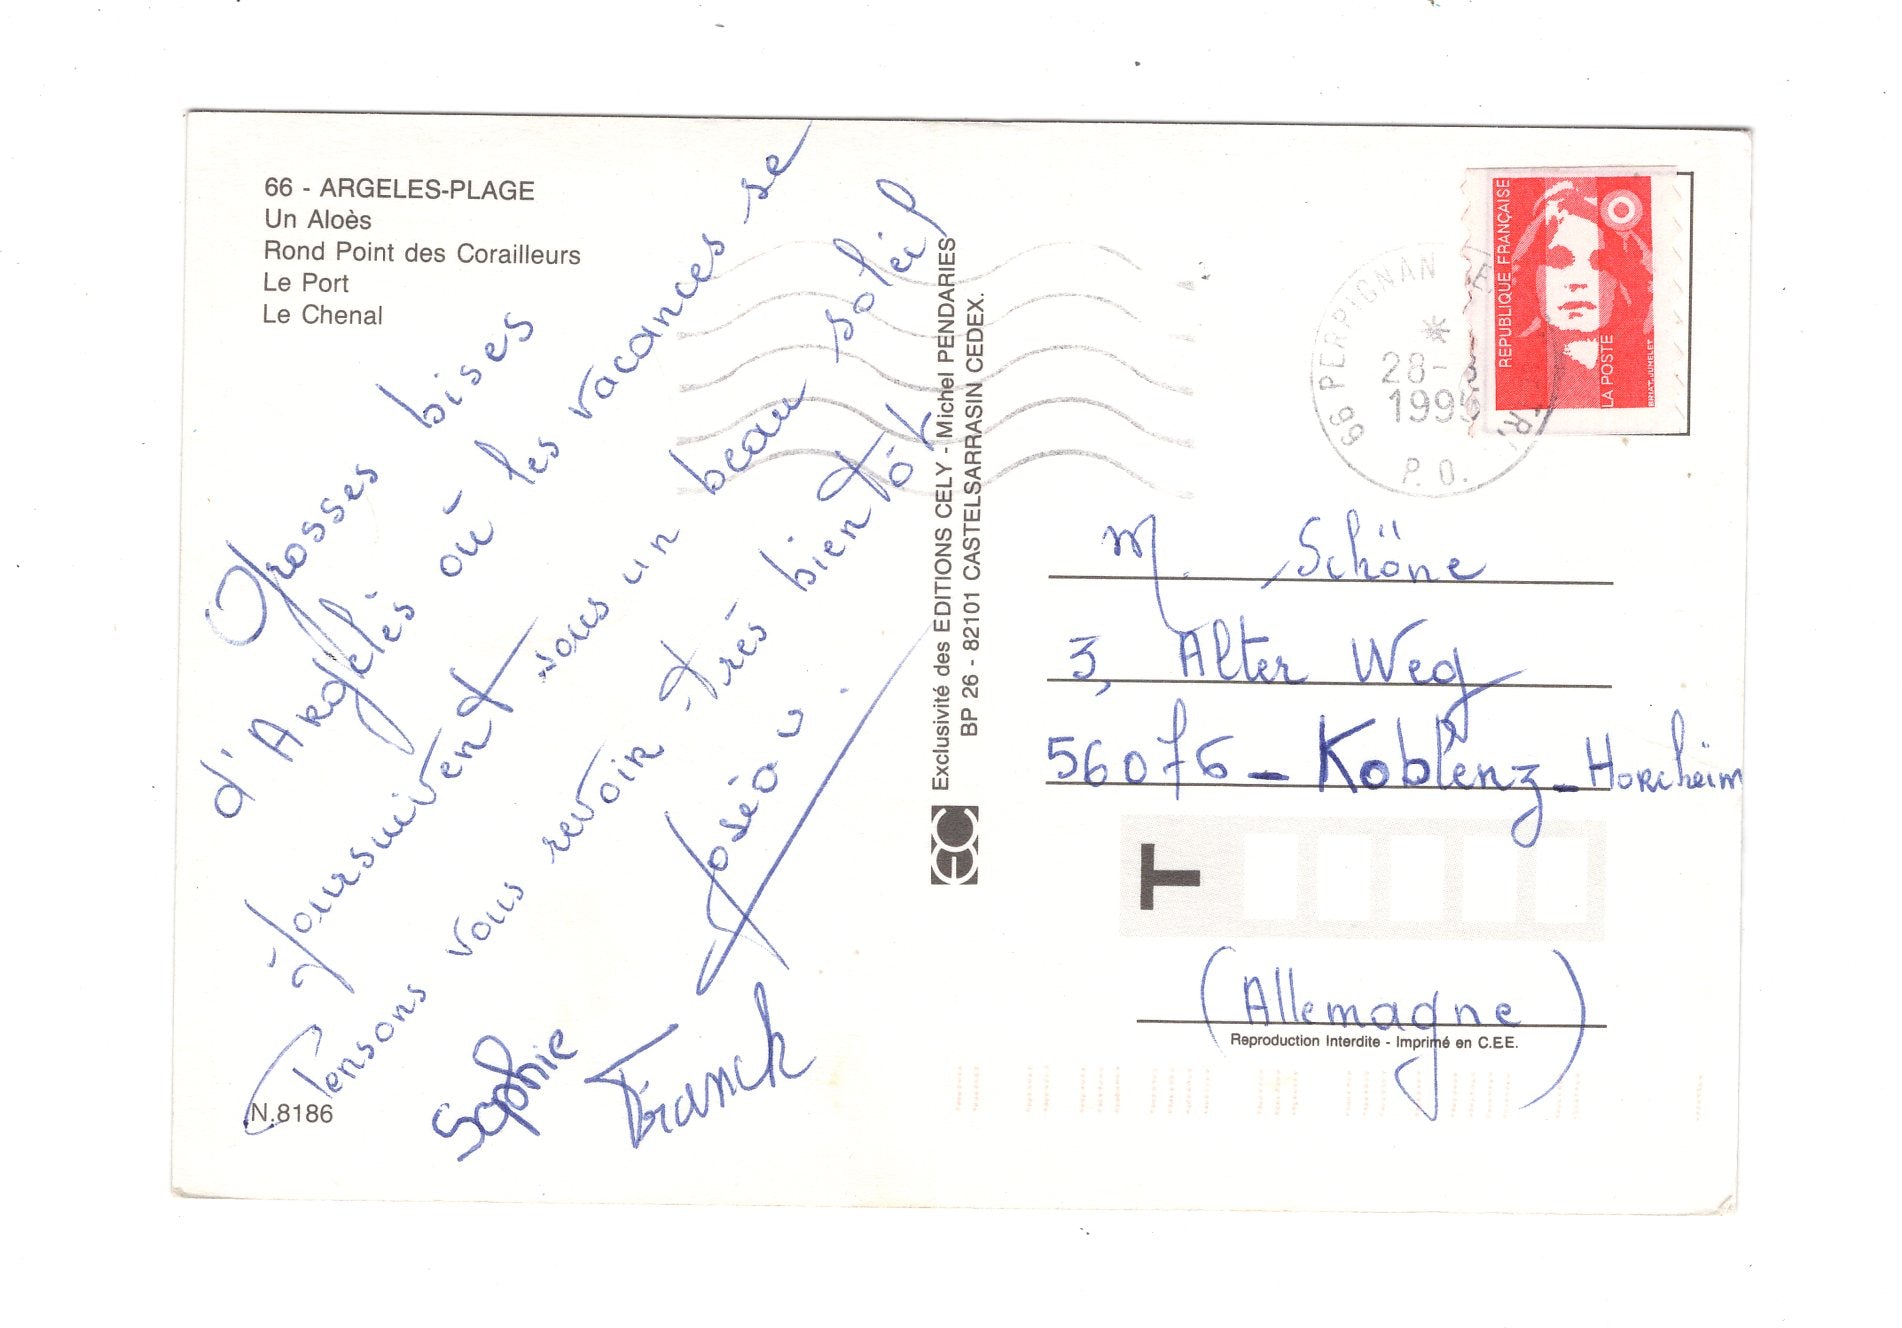 66 - ARGELES-PLAGE
Un Aloès
Rond Point des Corailleurs
Le Port
Le Chenal
Grosses bises
d'Argelès où les vacances se
poursuivent sous un beau soleil
Pensons vous revoir très bientôt
Sophie
Franck
N.8186
Exclusivité des EDITIONS CELY - Michel PENDARIES
BP 26 - 82101 CASTELSARRASIN CEDEX.
EC
REPUBLIQUE FRANÇAISE
LA POSTE
BRIAT-JUMELET
66 PERPIGNAN
28-
1995
P.O.
M. Schöne
3, Alter Weg
56076 - Koblenz - Horcheim
T
(Allemagne)
Reproduction Interdite - Imprimé en C.E.E.